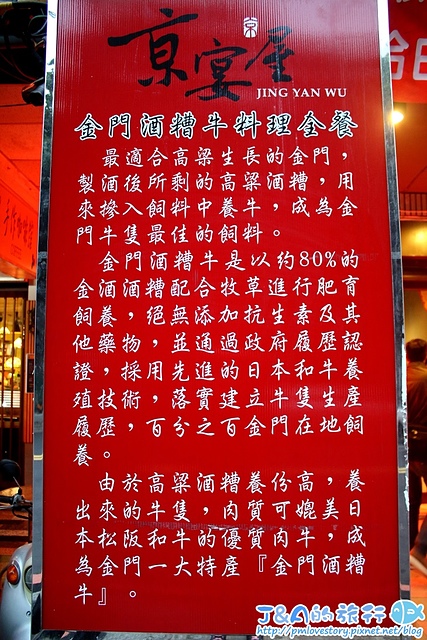 京宴屋
京
JING YAN WU
金門酒糟牛料理全餐
最適合高梁生長的金門，
製酒後所剩的高梁酒糟，用
來摻入飼料中養牛，成為金
門牛隻最佳的飼料。
金門酒糟牛是以約80%的
金酒酒糟配合牧草進行肥育
飼養，絕無添加抗生素及其
他藥物，並通過政府履歷認
證，採用先進的日本和牛養
殖技術，落實建立牛隻生產
履歷，百分之百金門在地飼
養。
由於高梁酒糟養份高，養
出來的牛隻，肉質可媲美日
本松阪和牛的優質肉牛，成
為金門一大特產『金門酒糟
牛』。
J&A的旅行
http://pmlovestory.pixnet.net/blog